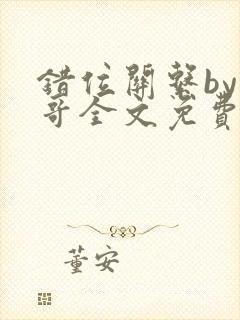 错位關繫by
哥全文免費
董安